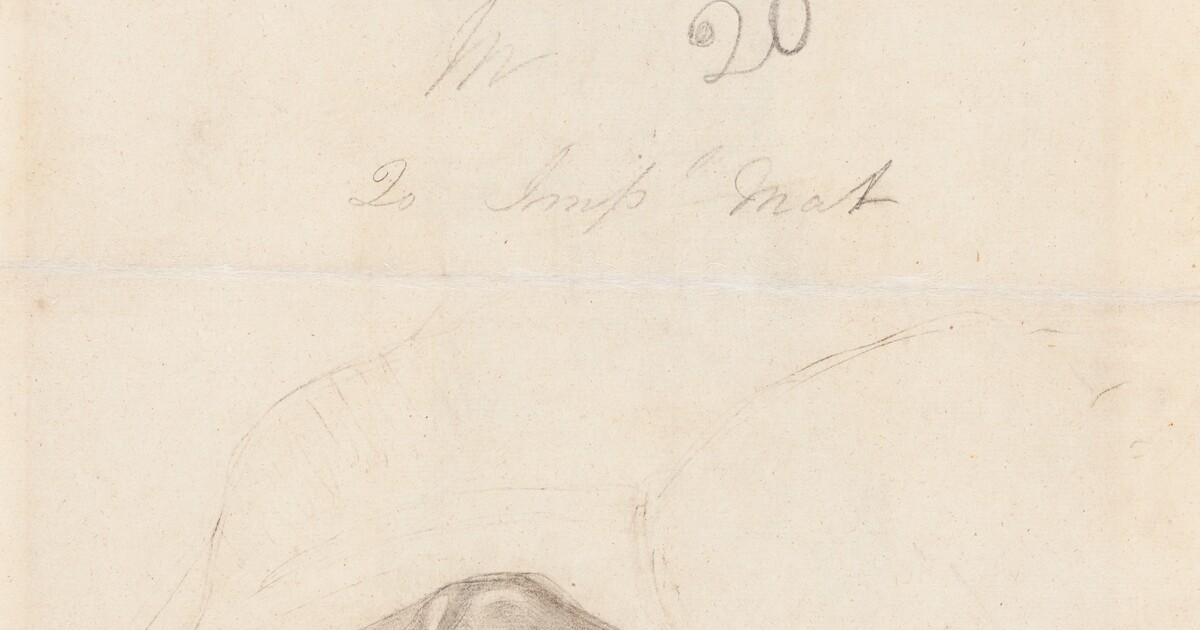 20
20 Imp'l Mat